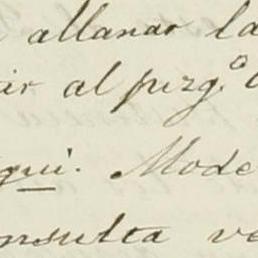 allanar la
ir al juzg.º
qui. Mode
nsulta ve